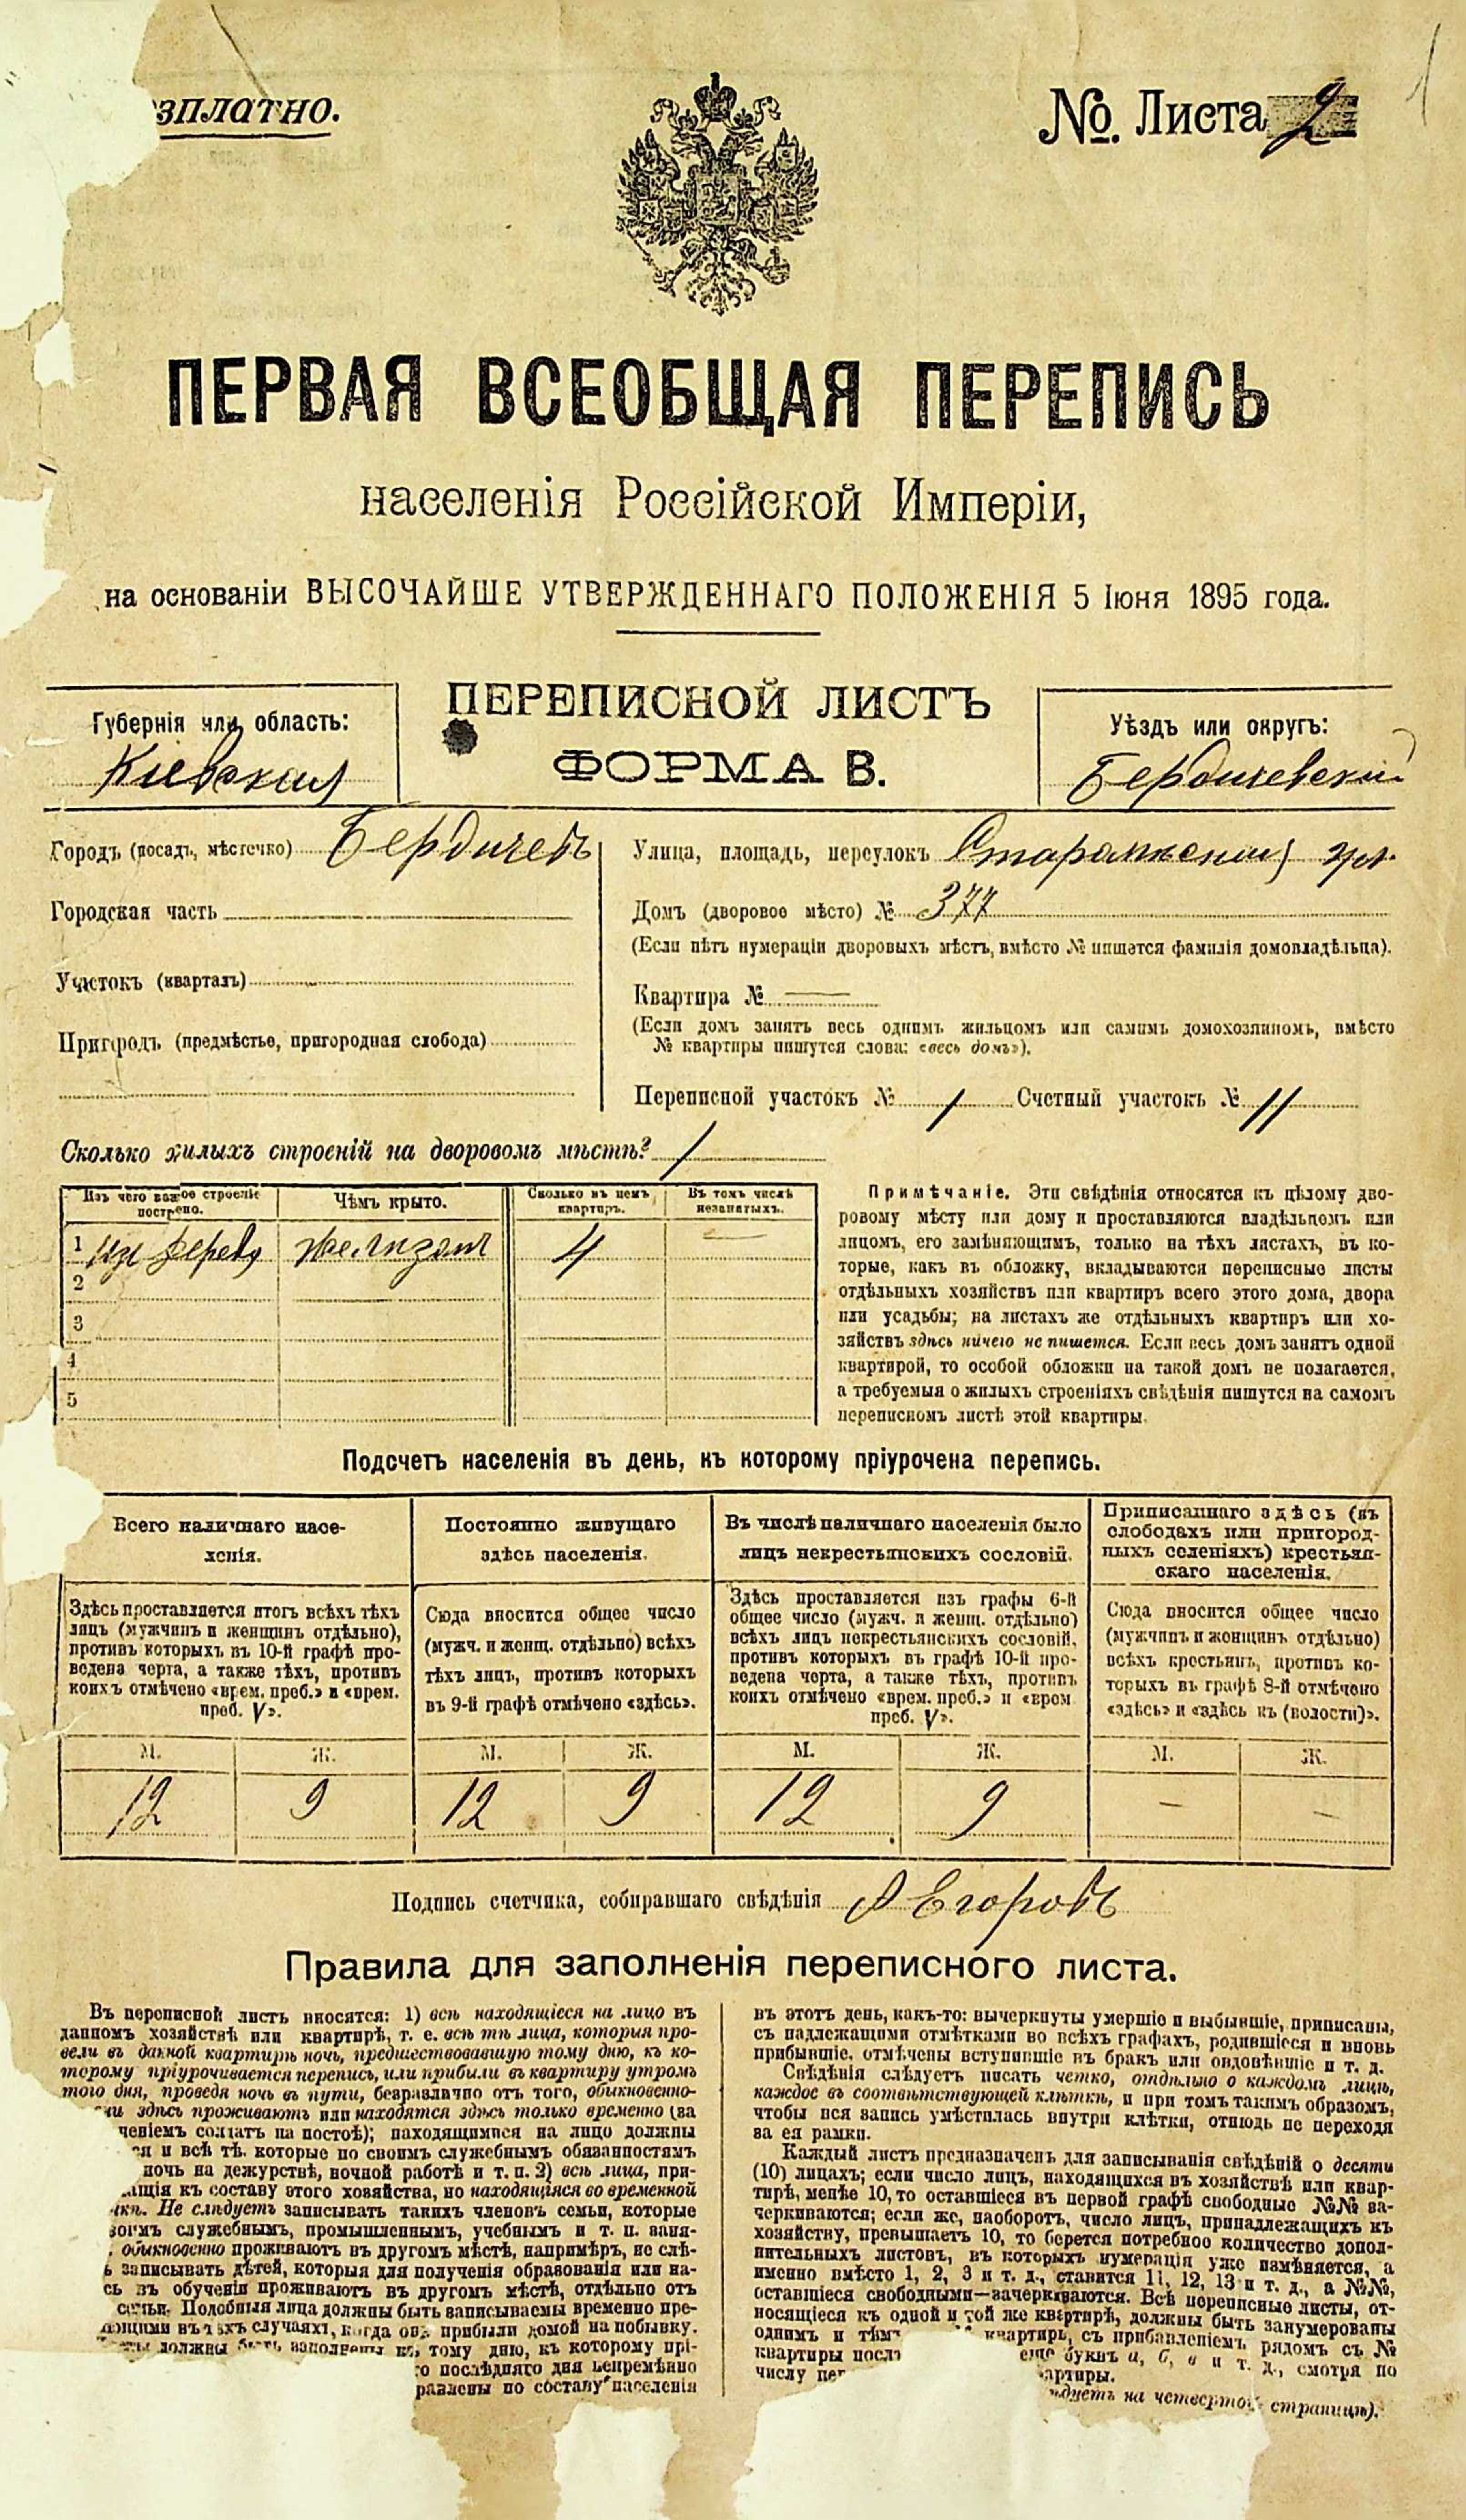 зплатно.
№. Листа 2
1
ПЕРВАЯ ВСЕОБЩАЯ ПЕРЕПИСЬ
населенія Россійской Имперіи,
на основаніи ВЫСОЧАЙШЕ УТВЕРЖДЕННАГО ПОЛОЖЕНІЯ 5 Іюня 1895 года.
ПЕРЕПИСНОЙ ЛИСТЪ
ФОРМА В.
Губернія или область:
Кіевская
Уѣздъ или округъ:
Бердичевскій
Городъ (посадъ, мѣстечко) Бердичевъ
Городская часть
Участокъ (кварталъ)
Пригородъ (предмѣстье, пригородная слобода)
Улица, площадь, переулокъ ул.
Домъ (дворовое мѣсто) № 377
(Если нѣтъ нумераціи дворовыхъ мѣстъ, вмѣсто № пишется фамилія домовладѣльца).
Квартира № —
(Если домъ занятъ весь однимъ жильцомъ или самимъ домохозяиномъ, вмѣсто
№ квартиры пишутся слова: «весь домъ»).
Переписной участокъ № 1 Счетный участокъ № 11
Сколько жилыхъ строеній на дворовомъ мѣстѣ? 1
Изъ чего важное строеніе построено.
Чѣмъ крыто.
Сколько въ немъ квартиръ.
Въ томъ числѣ незанятыхъ.
1 изъ дерева желизомъ 4 —
2
3
4
5
Примѣчаніе. Эти свѣдѣнія относятся къ цѣлому дво-
ровому мѣсту или дому и проставляются владѣльцемъ или
лицомъ, его замѣняющимъ, только на тѣхъ листахъ, въ ко-
торые, какъ въ обложку, вкладываются переписные листы
отдѣльныхъ хозяйствъ или квартиръ всего этого дома, двора
или усадьбы; на листахъ же отдѣльныхъ квартиръ или хо-
зяйствъ здѣсь ничего не пишется. Если весь домъ занятъ одной
квартирой, то особой обложки на такой домъ не полагается,
а требуемыя о жилыхъ строеніяхъ свѣдѣнія пишутся на самомъ
переписномъ листѣ этой квартиры.
Подсчетъ населенія въ день, къ которому пріурочена перепись.
Всего наличнаго насе-
ленія.
Здѣсь проставляется итогъ всѣхъ тѣхъ
лицъ (мужчинъ и женщинъ отдѣльно),
противъ которыхъ въ 10-й графѣ про-
ведена черта, а также тѣхъ, противъ
коихъ отмѣчено «врем. преб.» и «врем.
преб. V».
Постоянно живущаго
здѣсь населенія.
Сюда вносится общее число
(мужч. и женщ. отдѣльно) всѣхъ
тѣхъ лицъ, противъ которыхъ
въ 9-й графѣ отмѣчено «здѣсь».
Въ числѣ наличнаго населенія было
лицъ некрестьянскихъ сословій.
Здѣсь проставляется изъ графы 6-й
общее число (мужч. и женщ. отдѣльно)
всѣхъ лицъ некрестьянскихъ сословій,
противъ которыхъ въ графѣ 10-й про-
ведена черта, а также тѣхъ, противъ
коихъ отмѣчено «врем. преб.» и «врем
преб. V».
Приписаннаго здѣсь (въ
слободахъ или пригород-
ныхъ селеніяхъ) крестьян-
скаго населенія.
Сюда вносится общее число
(мужчинъ и женщинъ отдѣльно)
всѣхъ крестьянъ, противъ ко-
торыхъ въ графѣ 8-й отмѣчено
«здѣсь» и «здѣсь къ (волости)».
М. Ж. М. Ж. М. Ж. М. Ж.
12 9 12 9 12 9 — —
Подпись счетчика, собиравшаго свѣдѣнія А Егоровъ
Правила для заполненія переписного листа.
Въ переписной листъ вносятся: 1) всѣ находящіеся на лицо въ
данномъ хозяйствѣ или квартирѣ, т. е. всѣ тѣ лица, которыя про-
вели въ данной квартирѣ ночь, предшествовавшую тому дню, къ ко-
торому пріурочивается перепись, или прибыли въ квартиру утромъ
того дня, проведя ночь въ пути, безразлично отъ того, обыкновенно-
ли здѣсь проживаютъ или находятся здѣсь только временно (за
ченіемъ солдатъ на постоѣ); находящимися на лицо должны
ся и всѣ тѣ. которые по своимъ служебнымъ обязанностямъ
ночь на дежурствѣ, ночной работѣ и т. п. 2) всѣ лица, при-
ащія къ составу этого хозяйства, но находящіяся во временной
чкѣ. Не слѣдуетъ записывать такихъ членовъ семьи, которые
воимъ служебнымъ, промышленнымъ, учебнымъ и т. п. заня-
обыкновенно проживаютъ въ другомъ мѣстѣ, напримѣръ, не слѣ-
ъ записывать дѣтей, которыя для полученія образованія или на-
сь въ обученіи проживаютъ въ другомъ мѣстѣ, отдѣльно отъ
семьи. Подобныя лица должны быть записываемы временно пре-
ающими въ тѣхъ случаяхъ, когда они прибыли домой на побывку.
должны быть заполнены къ тому дню, къ которому прі-
го послѣдняго дня непремѣнно
равлены по составу населенія
въ этотъ день, какъ-то: вычеркнуты умершіе и выбывшіе, приписаны,
съ надлежащими отмѣтками во всѣхъ графахъ, родившіеся и вновь
прибывшіе, отмѣчены вступившіе въ бракъ или овдовѣвшіе и т. д.
Свѣдѣнія слѣдуетъ писать четко, отдѣльно о каждомъ лицѣ,
каждое въ соотвѣтствующей клѣткѣ, и при томъ такимъ образомъ,
чтобы вся запись умѣстилась внутри клѣтки, отнюдь не переходя
за ея рамки.
Каждый листъ предназначенъ для записыванія свѣдѣній о десяти
(10) лицахъ; если число лицъ, находящихся въ хозяйствѣ или квар-
тирѣ, менѣе 10, то оставшіеся въ первой графѣ свободные №№ за-
черкиваются; если же, наоборотъ, число лицъ, принадлежащихъ къ
хозяйству, превышаетъ 10, то берется потребное количество допол-
нительныхъ листовъ, въ которыхъ нумерація уже измѣняется, а
именно вмѣсто 1, 2, 3 и т. д., ставится 11, 12, 13 и т. д., а №№,
оставшіеся свободными—зачеркиваются. Всѣ переписные листы, от-
носящіеся къ одной и той же квартирѣ, должны быть занумерованы
однимъ и тѣмъ квартиры, съ прибавленіемъ рядомъ съ №
квартиры посл еще буквъ а, б, в и т. д., смотря по
числу пер артиры.
ѣдуетъ на четвертой страницѣ).